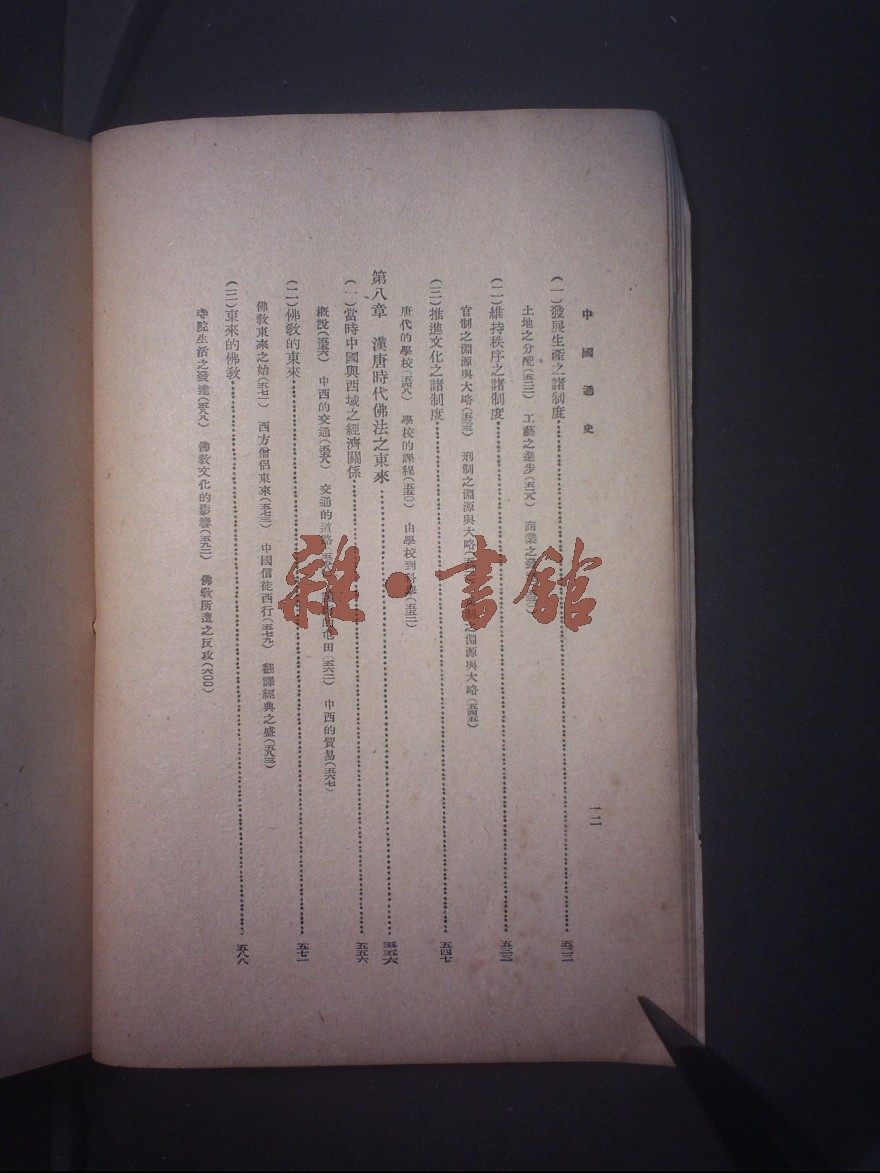 中國通史
一二
(一)發展生產之諸制度……五二二
土地之分配(五二二) 工藝之進步(五二八) 商業之
(二)維持秩序之諸制度……五三三
官制之淵源與大略(五三三) 刑制之淵源與大略 制之淵源與大略(五四五)
(三)推進文化之諸制度……五四七
唐代的學校(五四八) 學校的課程(五五〇) 由學校到科舉(五五二)
第八章 漢唐時代佛法之東來……五五六
(一)當時中國與西域之經濟關係……五五六
概說(五五六) 中西的交通(五五八) 交通的道路 屯田(五六二) 中西的貿易(五六七)
(二)佛敎的東來……五七一
佛敎東來之始(五七一) 西方僧侶東來(五七三) 中國信徒西行(五七九) 翻譯經典之盛(五八三)
(三)東來的佛敎……五八八
寺院生活之發達(五八八) 佛敎文化的影響(五九二) 佛敎所遭之反攻(六〇〇)
雜·書館